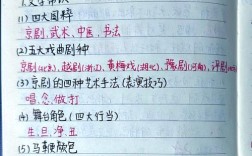 (1)四大国粹
京剧,武术,中医,书法
(2)五大戏曲剧种
京剧(北京),越剧(浙江),黄梅戏(湖北),豫剧(河南),评剧
(3)京剧的四种艺术手法(表演技巧)
唱、念、做、打
(4)舞台角色(四大行当)
生、旦、净、丑
(5)马鞭颜色